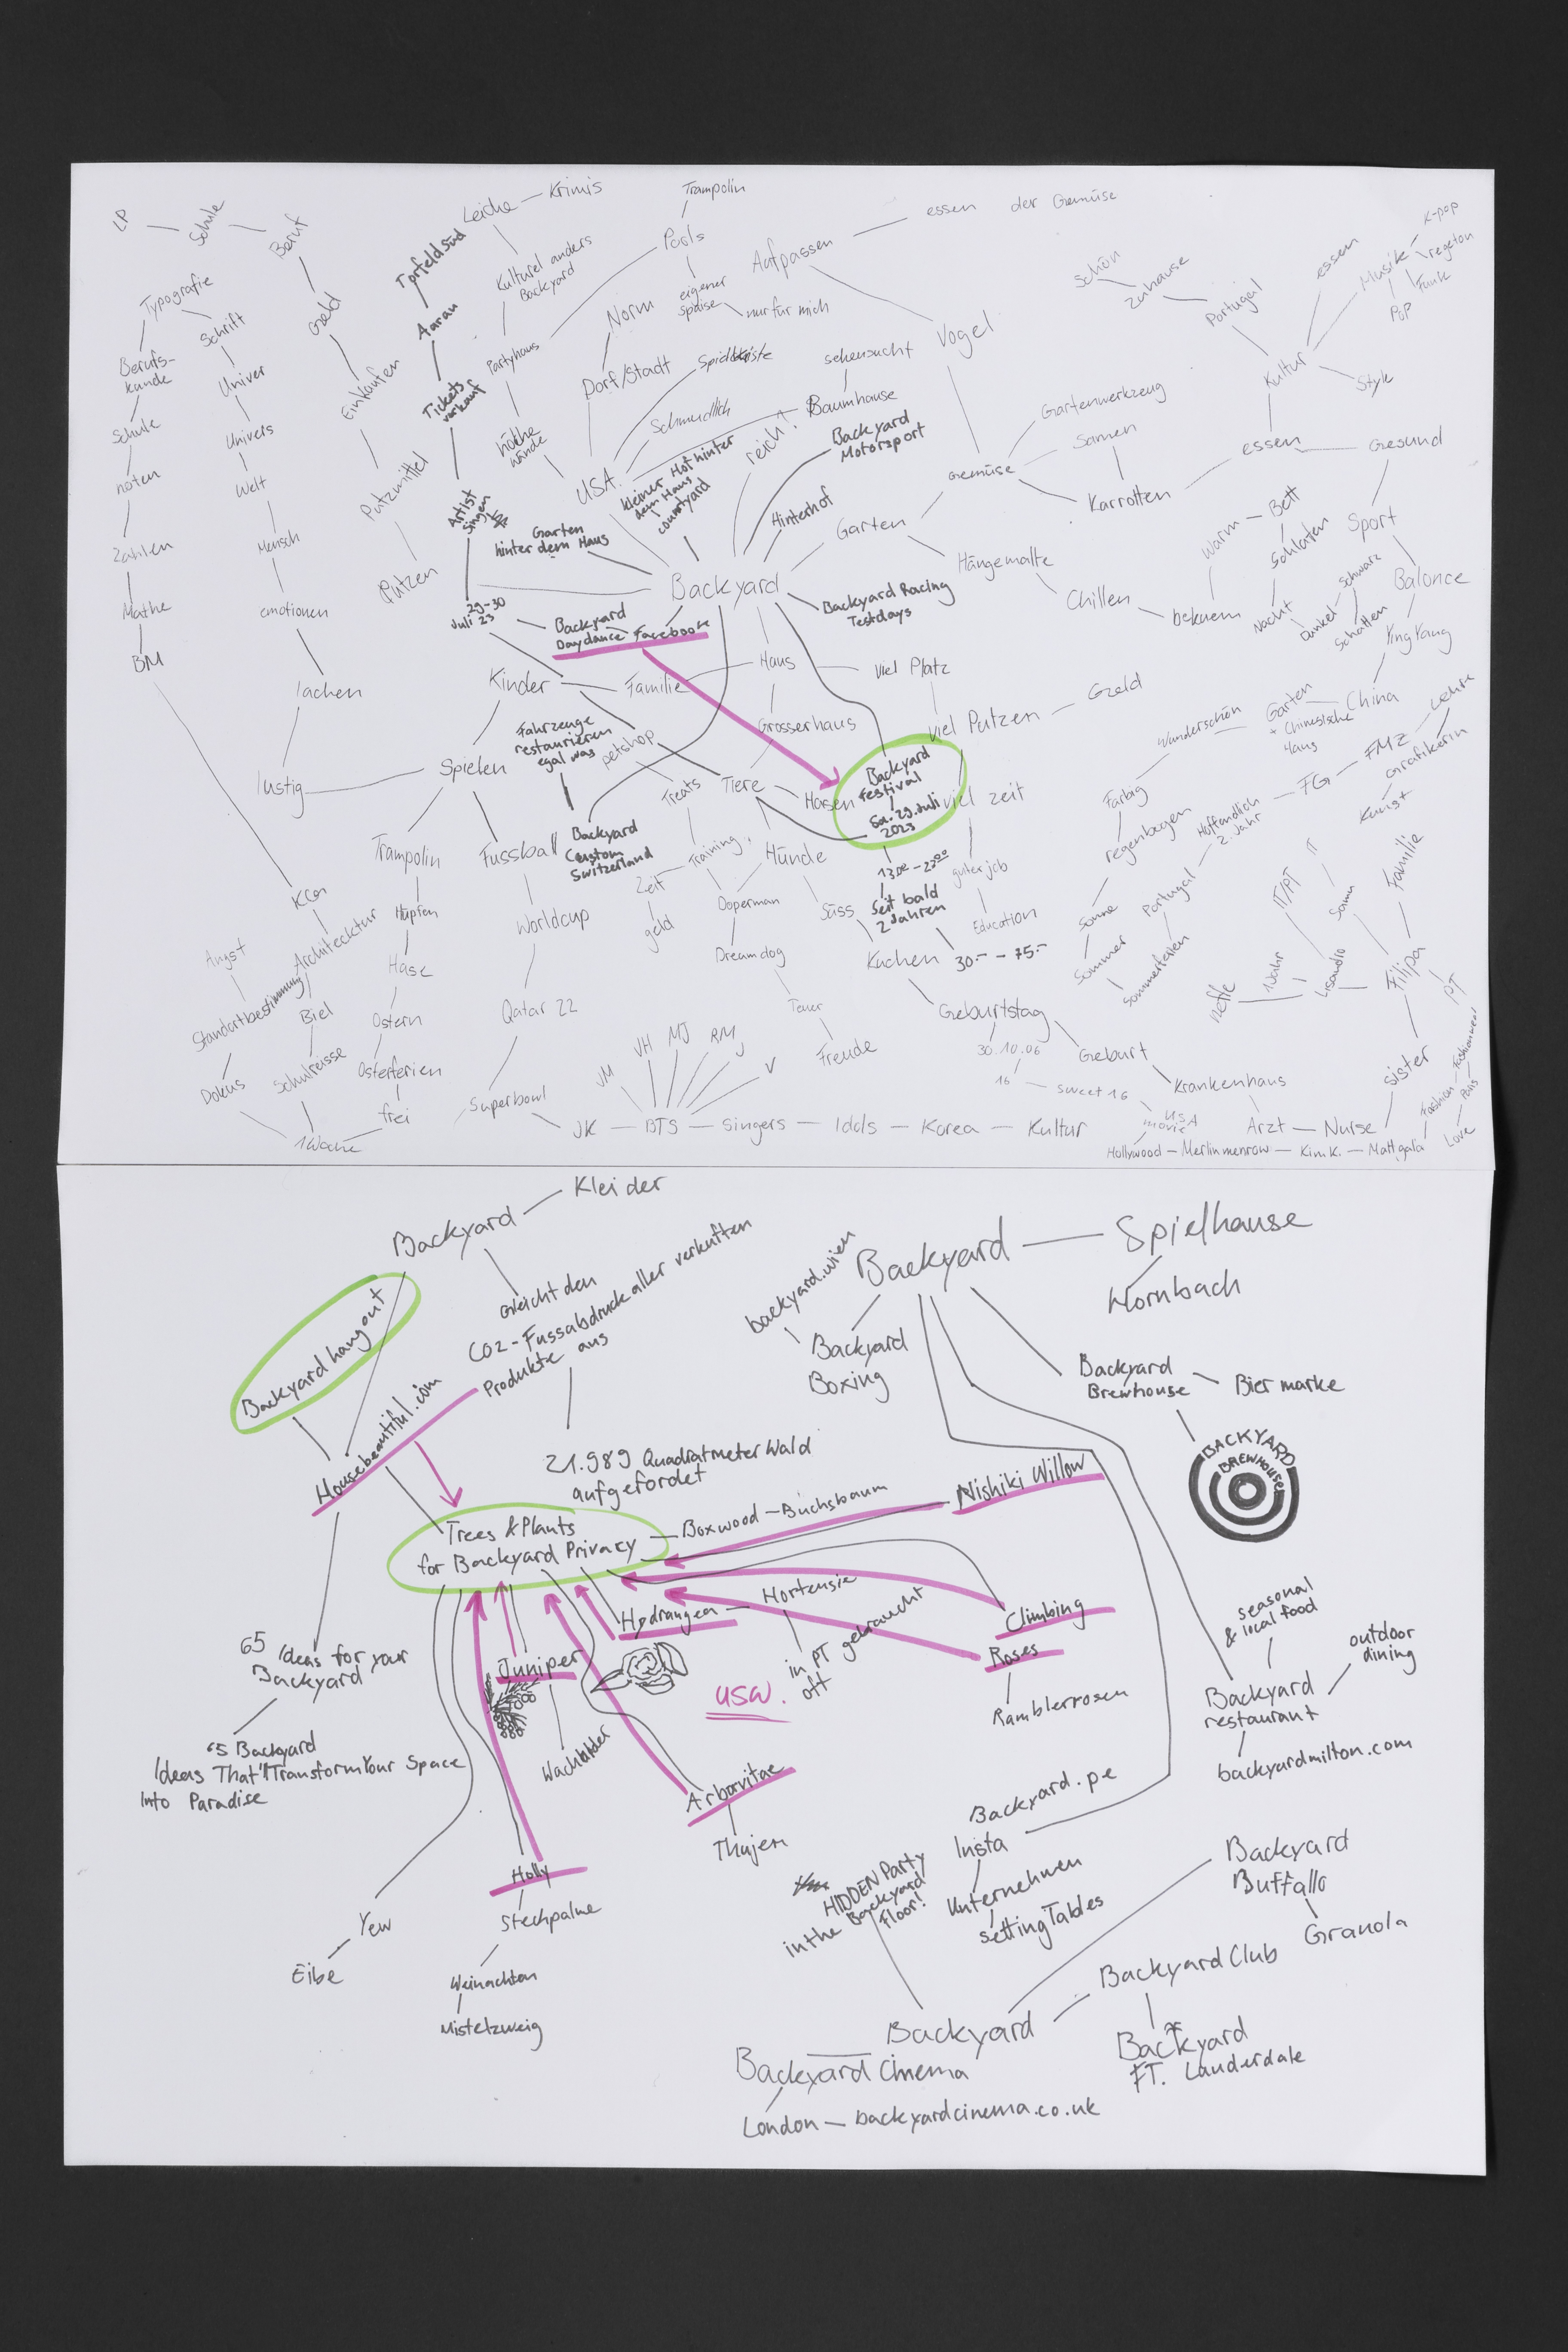 LP
Schule
Beruf
Geld
Einkaufen
Putzmittel
Putzen
Typografie
Berufs-
kunde
Schule
noten
Zahlen
Mathe
BM
KGA
Architecktur
Biel
Schulreisse
1 Woche
Schrift
Univer
Univers
Welt
Mensch
emotionen
lachen
lustig
Angst
Standortbestimmung
Dokus
Torfeld Süd
Aarau
Tickets
verkauf
Artist
singen
29-30
Juli 23
Leiche
Krimis
Kulturel anders
Backyard
Partyhaus
höche
Wände
Trampolin
Pools
eigener
spaise
nur für mich
Norm
Dorf/Stadt
USA
Spielkiste
Schmudlich
Aufpassen
essen der Gemüse
Vogel
sehensucht
Baumhause
reich?
Backyard
Motorsport
kleiner Hof hinter
dem Haus
courtyard
Garten
hinter dem Haus
Hinterhof
Backyard
Garten
Gemüse
Gartenwerkzeug
Samen
Karrotten
essen
Gesund
Kultur
Portugal
Zuhause
Schön
essen
Musik
K-pop
regeton
Funk
POP
Style
Hängematte
Chillen
bekuem
warm
Bett
Schlafen
Nacht
Dunkel
schwarz
Schatten
Sport
Balance
Ying Yang
China
Garten
+ Chinesische
Haus
Wunderschön
Farbig
regenbogen
Sonne
Sommer
Sommerferien
Portugal
Hoffendlich
2. Jahr
FG
FMZ
Lehre
Grafikerin
Kunst
Backyard
Daydance Facebook
Backyard Racing
Testdays
Haus
Viel Platz
viel Putzen
Geld
Familie
Kinder
Grosserhaus
Spielen
Fahrzeuge
restaurieren
egal was
Backyard
Custom
Switzerland
petshop
Treats
Training
Zeit
geld
Tiere
Hasen
Backyard
Festival
Sa. 29. Juli
2023
viel zeit
guter job
Education
13.00 - 23.00
Seit bald
2 Jahren
30.- - 75.-
Hunde
Süss
Doperman
Dreamdog
Teuer
Freude
Kuchen
Geburtstag
30.10.06
16
sweet 16
USA
movie
Geburt
Krankenhaus
Arzt
Nurse
Sister
Filipa
Familie
PT
Lisandro
1 Jahr
IT/PT
IT
Neffe
Trampolin
Hüpfen
Hase
Ostern
Osterferien
frei
Fussball
Worldcup
Qatar 22
Superbowl
JK
BTS
VH
MJ
RM
J
V
Singers
Idols
Korea
Kultur
Hollywood
Merlin menrow
Kim K.
Mattgala
Fashion
Fashionweek
Paris
Love
Backyard
Kleider
Gleicht den
CO2-Fussabdruck aller verkuften
Produkte aus
21.989 Quadratmeter Wald
aufgefordet
Backyard hangout
Housebeautiful.com
Trees & Plants
for Backyard Privacy
65 Ideas for your
Backyard
65 Backyard
Ideas That'll Transform Your Space
Into Paradise
Boxwood - Buchsbaum
Nishiki Willow
Hydrangea
Hortensie
in PT gebraucht
oft
Climbing
Roses
Ramblerrosen
Juniper
Wachholder
usw.
Arborvitae
Thujen
Holly
Stechpalme
Weinachten
Mistelzweig
Yew
Eibe
backyard.wien
Backyard
Spielhause
Hornbach
Backyard
Boxing
Backyard
Brewhouse
Bier marke
BACKYARD
BREWHOUSE
seasonal
& local food
outdoor
dining
Backyard
restaurant
backyardmilton.com
Backyard.pe
Insta
Unternehmen
setting Tables
HIDDEN Party
in the Backyard
Floor!
Backyard
Buffallo
Granola
Backyard Club
Backyard
FT. Lauderdale
Backyard
Backyard Cinema
London - backyardcinema.co.uk